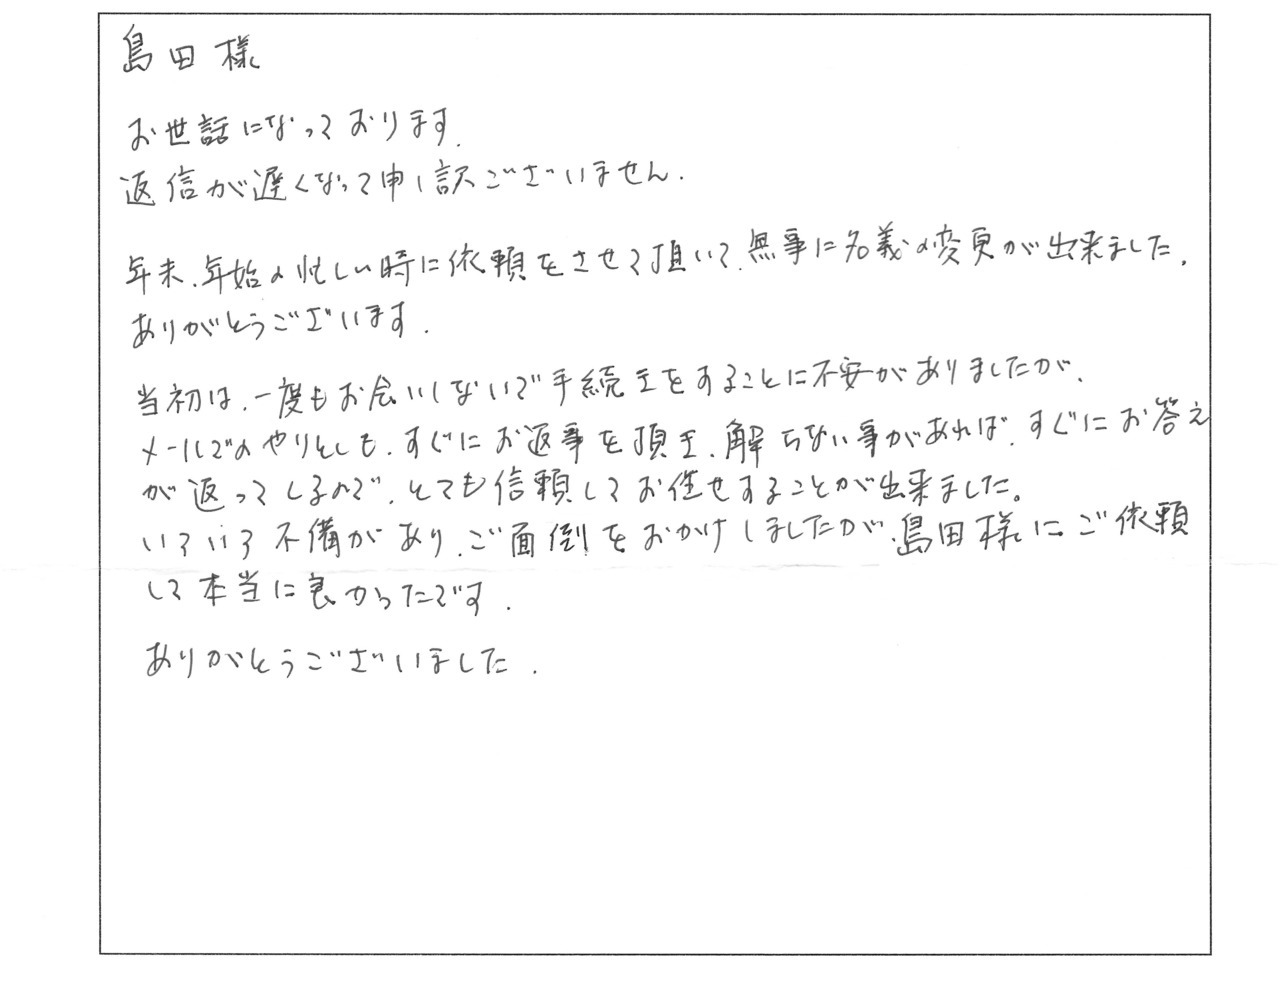 島田様
お世話になっております.
返信が遅くなって申し訳ございません.
年末、年始の忙しい時に依頼をさせて頂いて、無事に名義の変更が出来ました.
ありがとうございます.
当初は、一度もお会いしないで手続きをすることに不安がありましたが、
メールでのやりとしも、すぐにお返事を頂き、解らない事があれば、すぐにお答え
が返ってくるので、とても信頼してお任せすることが出来ました。
いろいろ不備があり、ご面倒をおかけしましたが、島田様にご依頼
して本当に良かったです.
ありがとうございました.